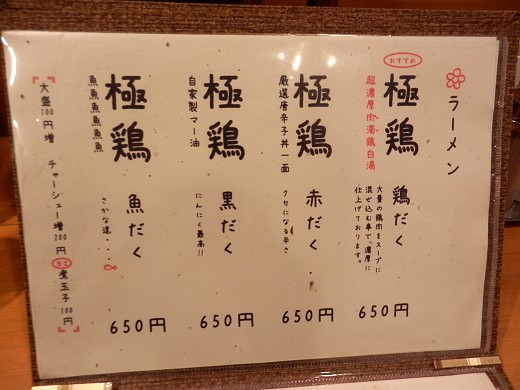 ラーメン
おすすめ
極鶏 鶏だく
超濃厚肉濁鶏白湯
大量の鶏肉をスープに
混ぜ込む事で、濃厚に
仕上げております。
650円
極鶏 赤だく
厳選唐辛子丼一面
クセになる辛さ
650円
極鶏 黒だく
自家製マー油
にんにく最高!!
650円
極鶏 魚だく
魚魚魚魚魚魚
さかな達・・・
650円
大盛100円増 チャーシュー増200円 煮玉子100円